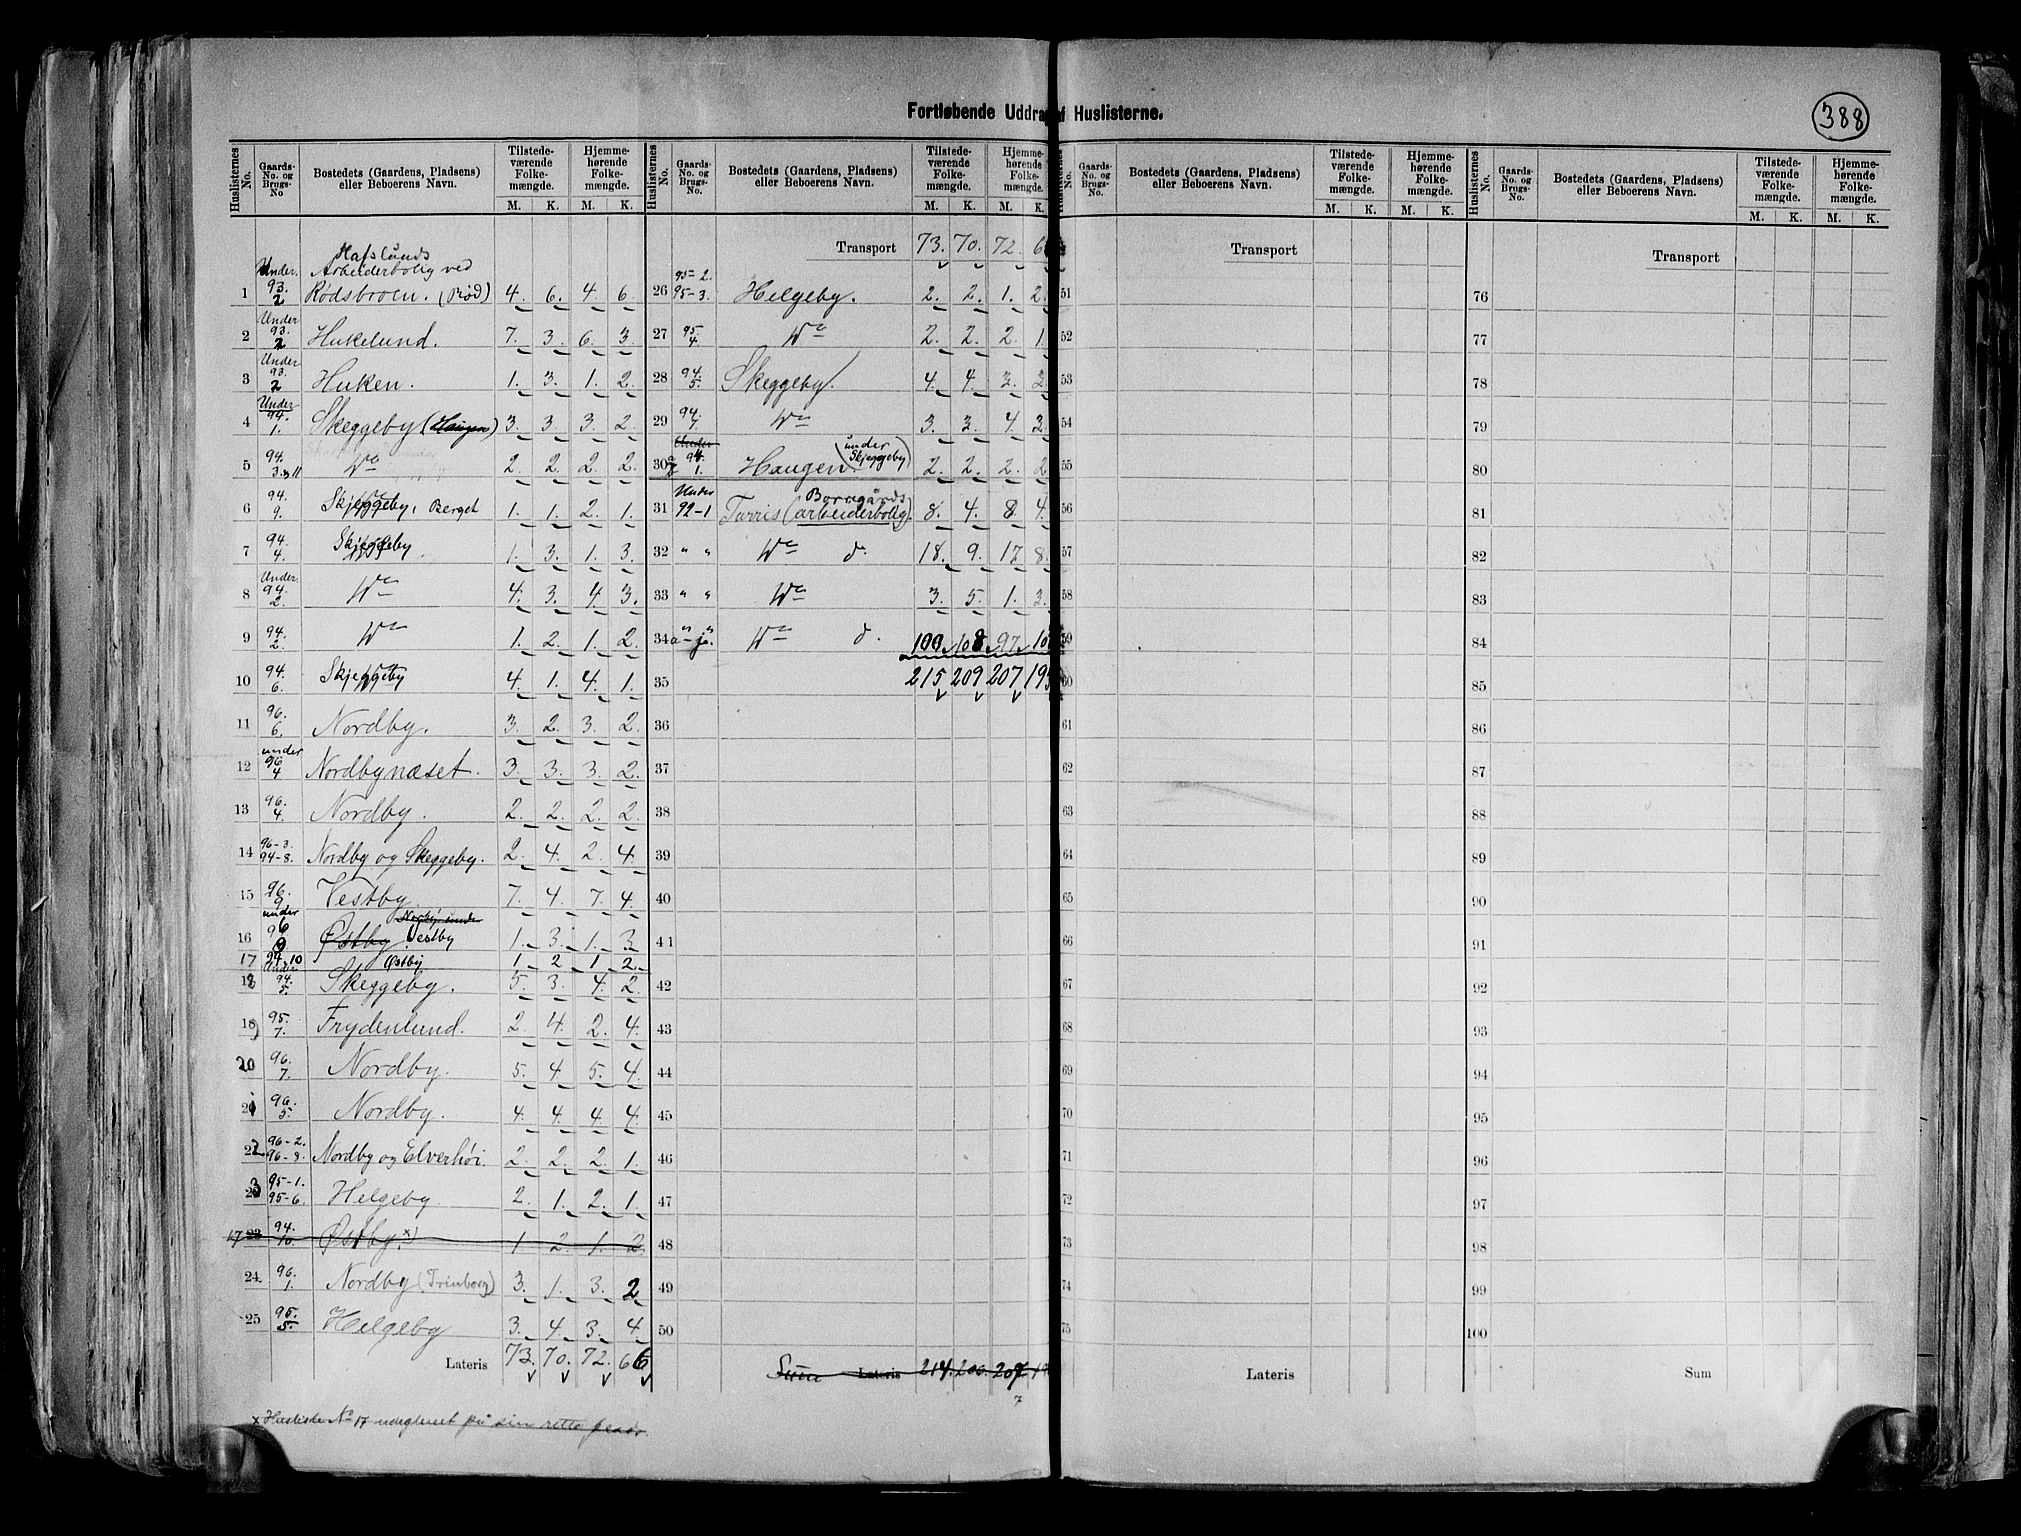 388
Fortløbende Uddrag af Huslisterne.
Huslisternes No. Gaards-No. og Brugs-No Bostedets (Gaardens, Pladsens) eller Beboerens Navn. Tilstede-værende Folke-mængde. M. K. Hjemme-hørende Folke-mængde. M. K.
1 Under 93. 2 Hafslunds Arbeiderbolig ved Rødsbroen. (Rød) 4. 6. 4. 6.
2 Under 93. 2 Hukelund. 7. 3. 6. 3.
3 Under 93. 2 Huken. 1. 3. 1. 2.
4 Under 94. 1. Skeggeby (Haugen) 3. 3. 3. 2.
5 94. 3. Do 2. 2. 2. 2.
6 94. 9. Skjeggeby, Berget 1. 1. 2. 1.
7 94. 4. Skjeggeby 1. 3. 1. 3.
8 Under 94. 2. Do 4. 3. 4. 3.
9 94. 2. Do 1. 2. 1. 2.
10 94. 6. Skjeggeby 4. 1. 4. 1.
11 96. 6. Nordby. 3. 2. 3. 2.
12 under 96 4 Nordbynæset. 3. 3. 3. 2.
13 96. 4. Nordby. 2. 2. 2. 2.
14 96-3. 94-8. Nordby og Skeggeby. 2. 4. 2. 4.
15 96. 9 Vestby. 7. 4. 7. 4.
16 under 96 9 Østby. Vestby 1. 3. 1. 3
17 94.10 Østby 1 2 1 2.
18 Under 94. 5. Skeggeby. 5. 3. 4. 2
18 95. 7. Frydenlund. 2. 4. 2. 4.
20 96. 7. Nordby. 5. 4 5. 4.
21 96. 5. Nordby. 4. 4. 4. 4.
22 96-2. 96-8. Nordby og Elverhöi. 2. 2. 2. 1.
23 95-1. 95-6. Helgeby. 2. 1. 2. 1.
17 23 94. 10. Østby. x) 1. 2. 1. 2.
24 96. 1. Nordby (Trinborg) 3. 1. 3. 2
25 95. 5. Helgeby 3. 4. 3. 4.
Lateris 73. 70. 72. 66
x Husliste No 17 udeglemt på sin rette plads.
Huslisternes No. Gaards-No. og Brugs-No. Bostedets (Gaardens, Pladsens) eller Beboerens Navn. Tilstede-værende Folke-mængde. M. K. Hjemme-hørende Folke-mængde. M. K.
Transport 73. 70. 72. 6
26 95-2. 95-3. Helgeby. 2. 2. 1. 2.
27 95. 4. Do 2. 2. 2. 1.
28 94. 5. Skeggeby. 4. 4. 3. 3.
29 94. 7. Do 3. 3. 4. 3.
30 Under 94. 1. Haugen (under Skjeggeby) 2. 2. 2. 2
31 Under 92-1 Tarris (Borregårds arbeiderbolig). 8. 4. 8. 4.
32 " " Do d. 18. 9. 17. 8.
33 " " Do 3. 5. 1. 3.
34 " " Do d. 100. 108 97. 10
35 215 209 207 195
36
37
38
39
40
41
42
43
44
45
46
47
48
49
50
Sum Lateris 214. 200. 207 19
7
Gaards-No. og Brugs-No. Bostedets (Gaardens, Pladsens) eller Beboerens Navn. Tilstede-værende Folke-mængde. M. K. Hjemme-hørende Folke-mængde. M. K.
Transport
51
52
53
54
55
56
57
58
59
60
61
62
63
64
65
66
67
68
69
70
71
72
73
74
75
Lateris
Huslisternes No. Gaards-No. og Brugs-No. Bostedets (Gaardens, Pladsens) eller Beboerens Navn. Tilstede-værende Folke-mængde. M. K. Hjemme-hørende Folke-mængde. M. K.
Transport
76
77
78
79
80
81
82
83
84
85
86
87
88
89
90
91
92
93
94
95
96
97
98
99
100
Sum